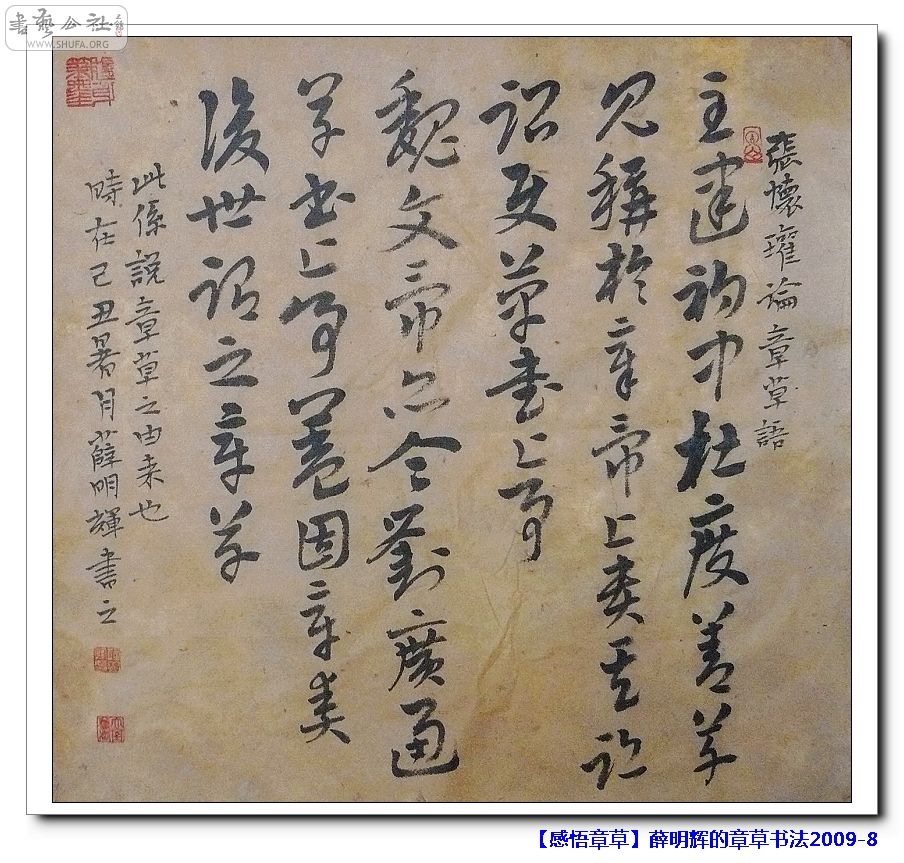 書藝公社
WWW.SHUFA.ORG
張懷瓘論章草語
至建初中杜度善草
見稱於章帝上貴其跡
詔使草書上事
魏文帝亦令劉廣通
草書上事蓋因章奏
後世謂之章草
此係說章草之由来也
時在己丑暑月薛明輝書之
【感悟章草】薛明辉的章草书法2009-8